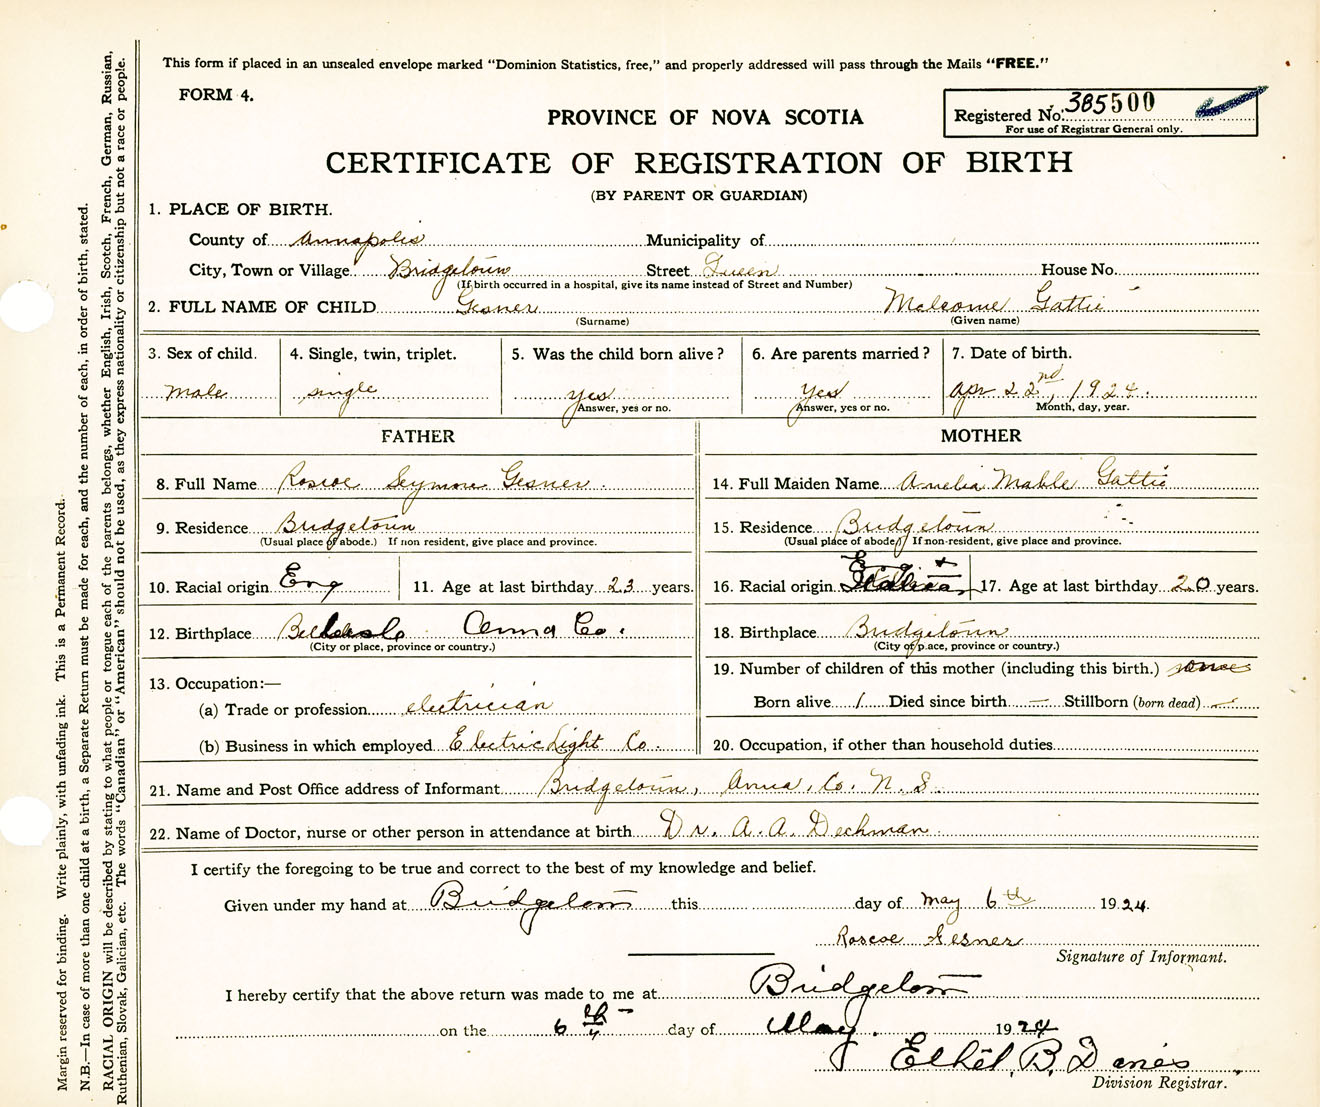 This form if placed in an unsealed envelope marked "Dominion Statistics, free," and properly addressed will pass through the Mails "FREE."
FORM 4.
Registered No. 385500
For use of Registrar General only.
PROVINCE OF NOVA SCOTIA
CERTIFICATE OF REGISTRATION OF BIRTH
(BY PARENT OR GUARDIAN)
1. PLACE OF BIRTH.
County of Annapolis Municipality of
City, Town or Village Bridgetown Street Queen House No.
(If birth occurred in a hospital, give its name instead of Street and Number)
2. FULL NAME OF CHILD Gesner Malcome Gattie
(Surname) (Given name)
3. Sex of child. 4. Single, twin, triplet. 5. Was the child born alive? 6. Are parents married? 7. Date of birth.
male single yes Yes Apr 22nd, 1924.
Answer, yes or no. Answer, yes or no. Month, day, year.
FATHER MOTHER
8. Full Name Roscoe Seymour Gesner. 14. Full Maiden Name Amelia Mable Gattie
9. Residence Bridgetown 15. Residence Bridgetown
(Usual place of abode.) If non resident, give place and province. (Usual place of abode) If non-resident, give place and province.
10. Racial origin Eng 11. Age at last birthday 23 years. 16. Racial origin 17. Age at last birthday 20 years.
12. Birthplace Anna Co. 18. Birthplace Bridgetown
(City or place, province or country.) (City or place, province or country.)
19. Number of children of this mother (including this birth.)
13. Occupation:—
(a) Trade or profession electrician Born alive 1 Died since birth — Stillborn (born dead) —
(b) Business in which employed Electric Light Co. 20. Occupation, if other than household duties
21. Name and Post Office address of Informant Bridgetown, Anna. Co. N. S.
22. Name of Doctor, nurse or other person in attendance at birth Dr. A. A. Dechman
I certify the foregoing to be true and correct to the best of my knowledge and belief.
Given under my hand at Bridgetown this day of May 6th 1924.
Roscoe Gesner
Signature of Informant.
I hereby certify that the above return was made to me at Bridgetown
on the 6th day of May. 1924
Ethel. B. 
Division Registrar.
Margin reserved for binding. Write plainly, with unfading ink. This is a Permanent Record.
N.B.—In case of more than one child at a birth, a Separate Return must be made for each, and the number of each, in order of birth, stated.
RACIAL ORIGIN will be described by stating to what people or tongue each of the parents belongs, whether English, Irish, Scotch, French, German, Russian,
Ruthenian, Slovak, Galician, etc. The words "Canadian" or "American" should not be used, as they express nationality or citizenship but not a race or people.